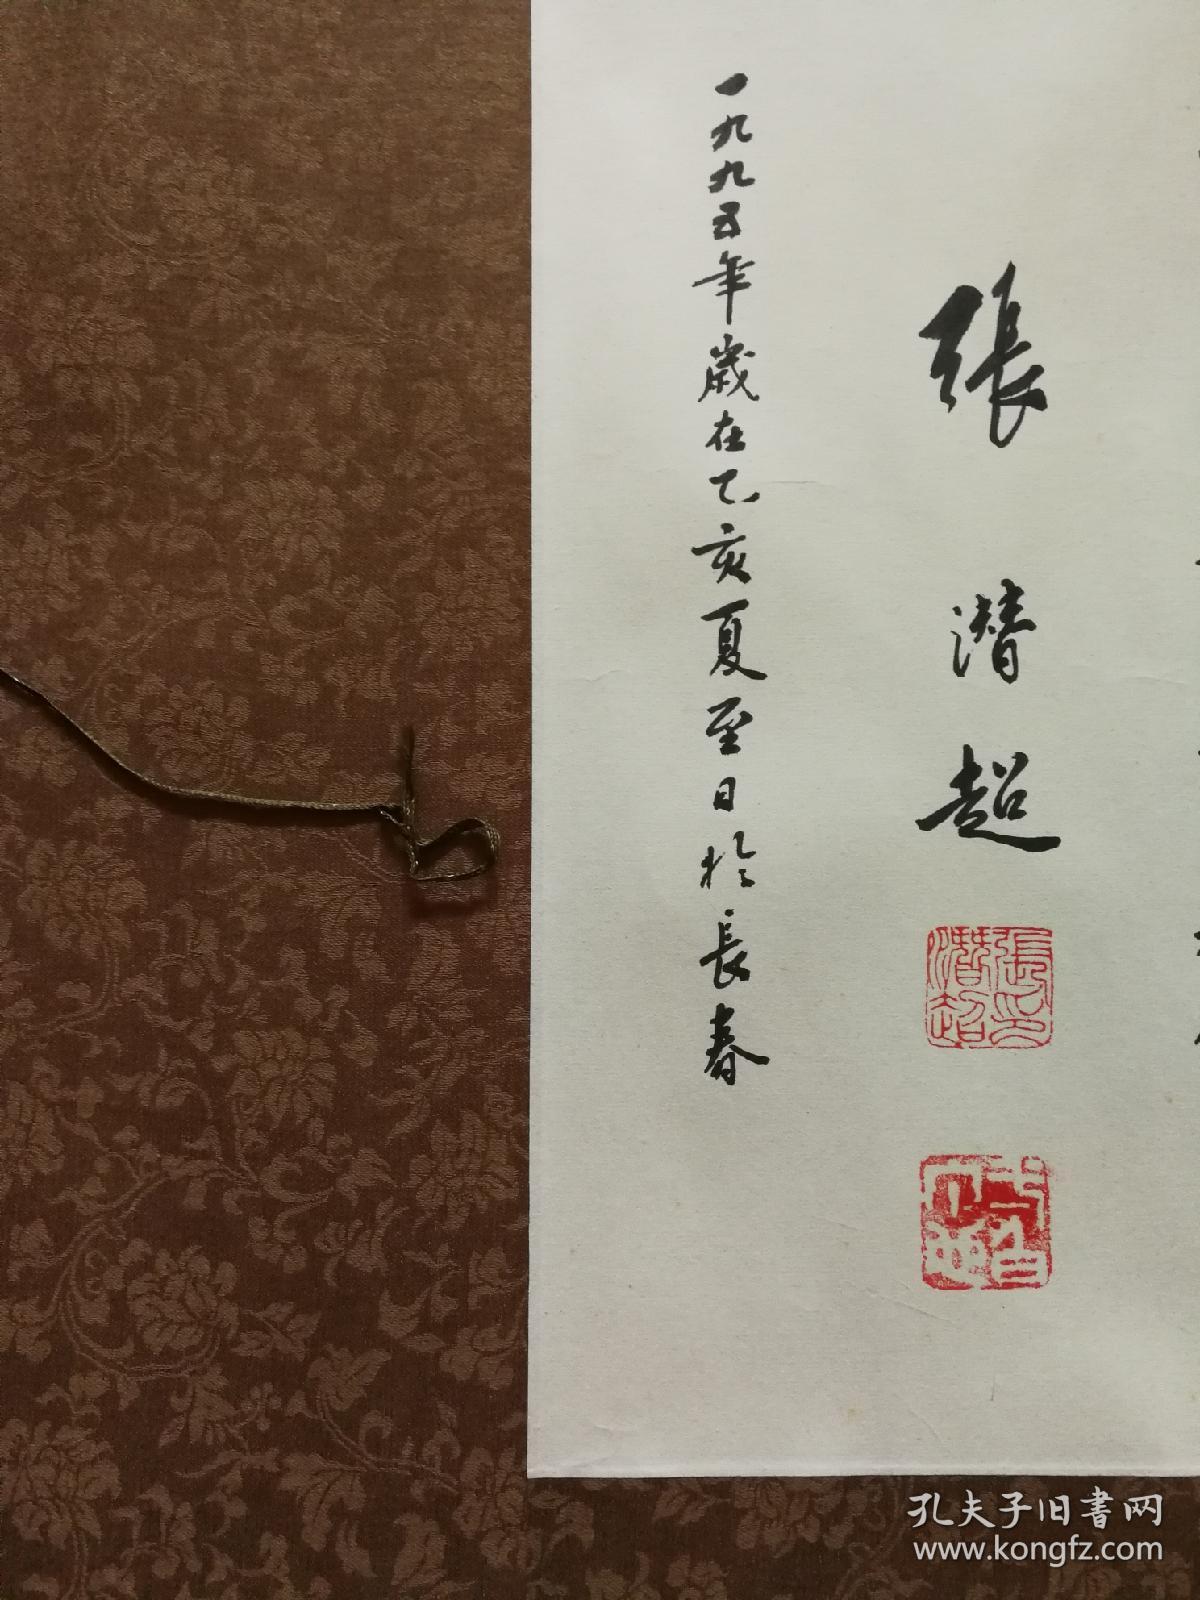 張潛超
一九九五年歲在乙亥夏至日於長春
張潛超印
孔夫子旧書网
www.kongfz.com